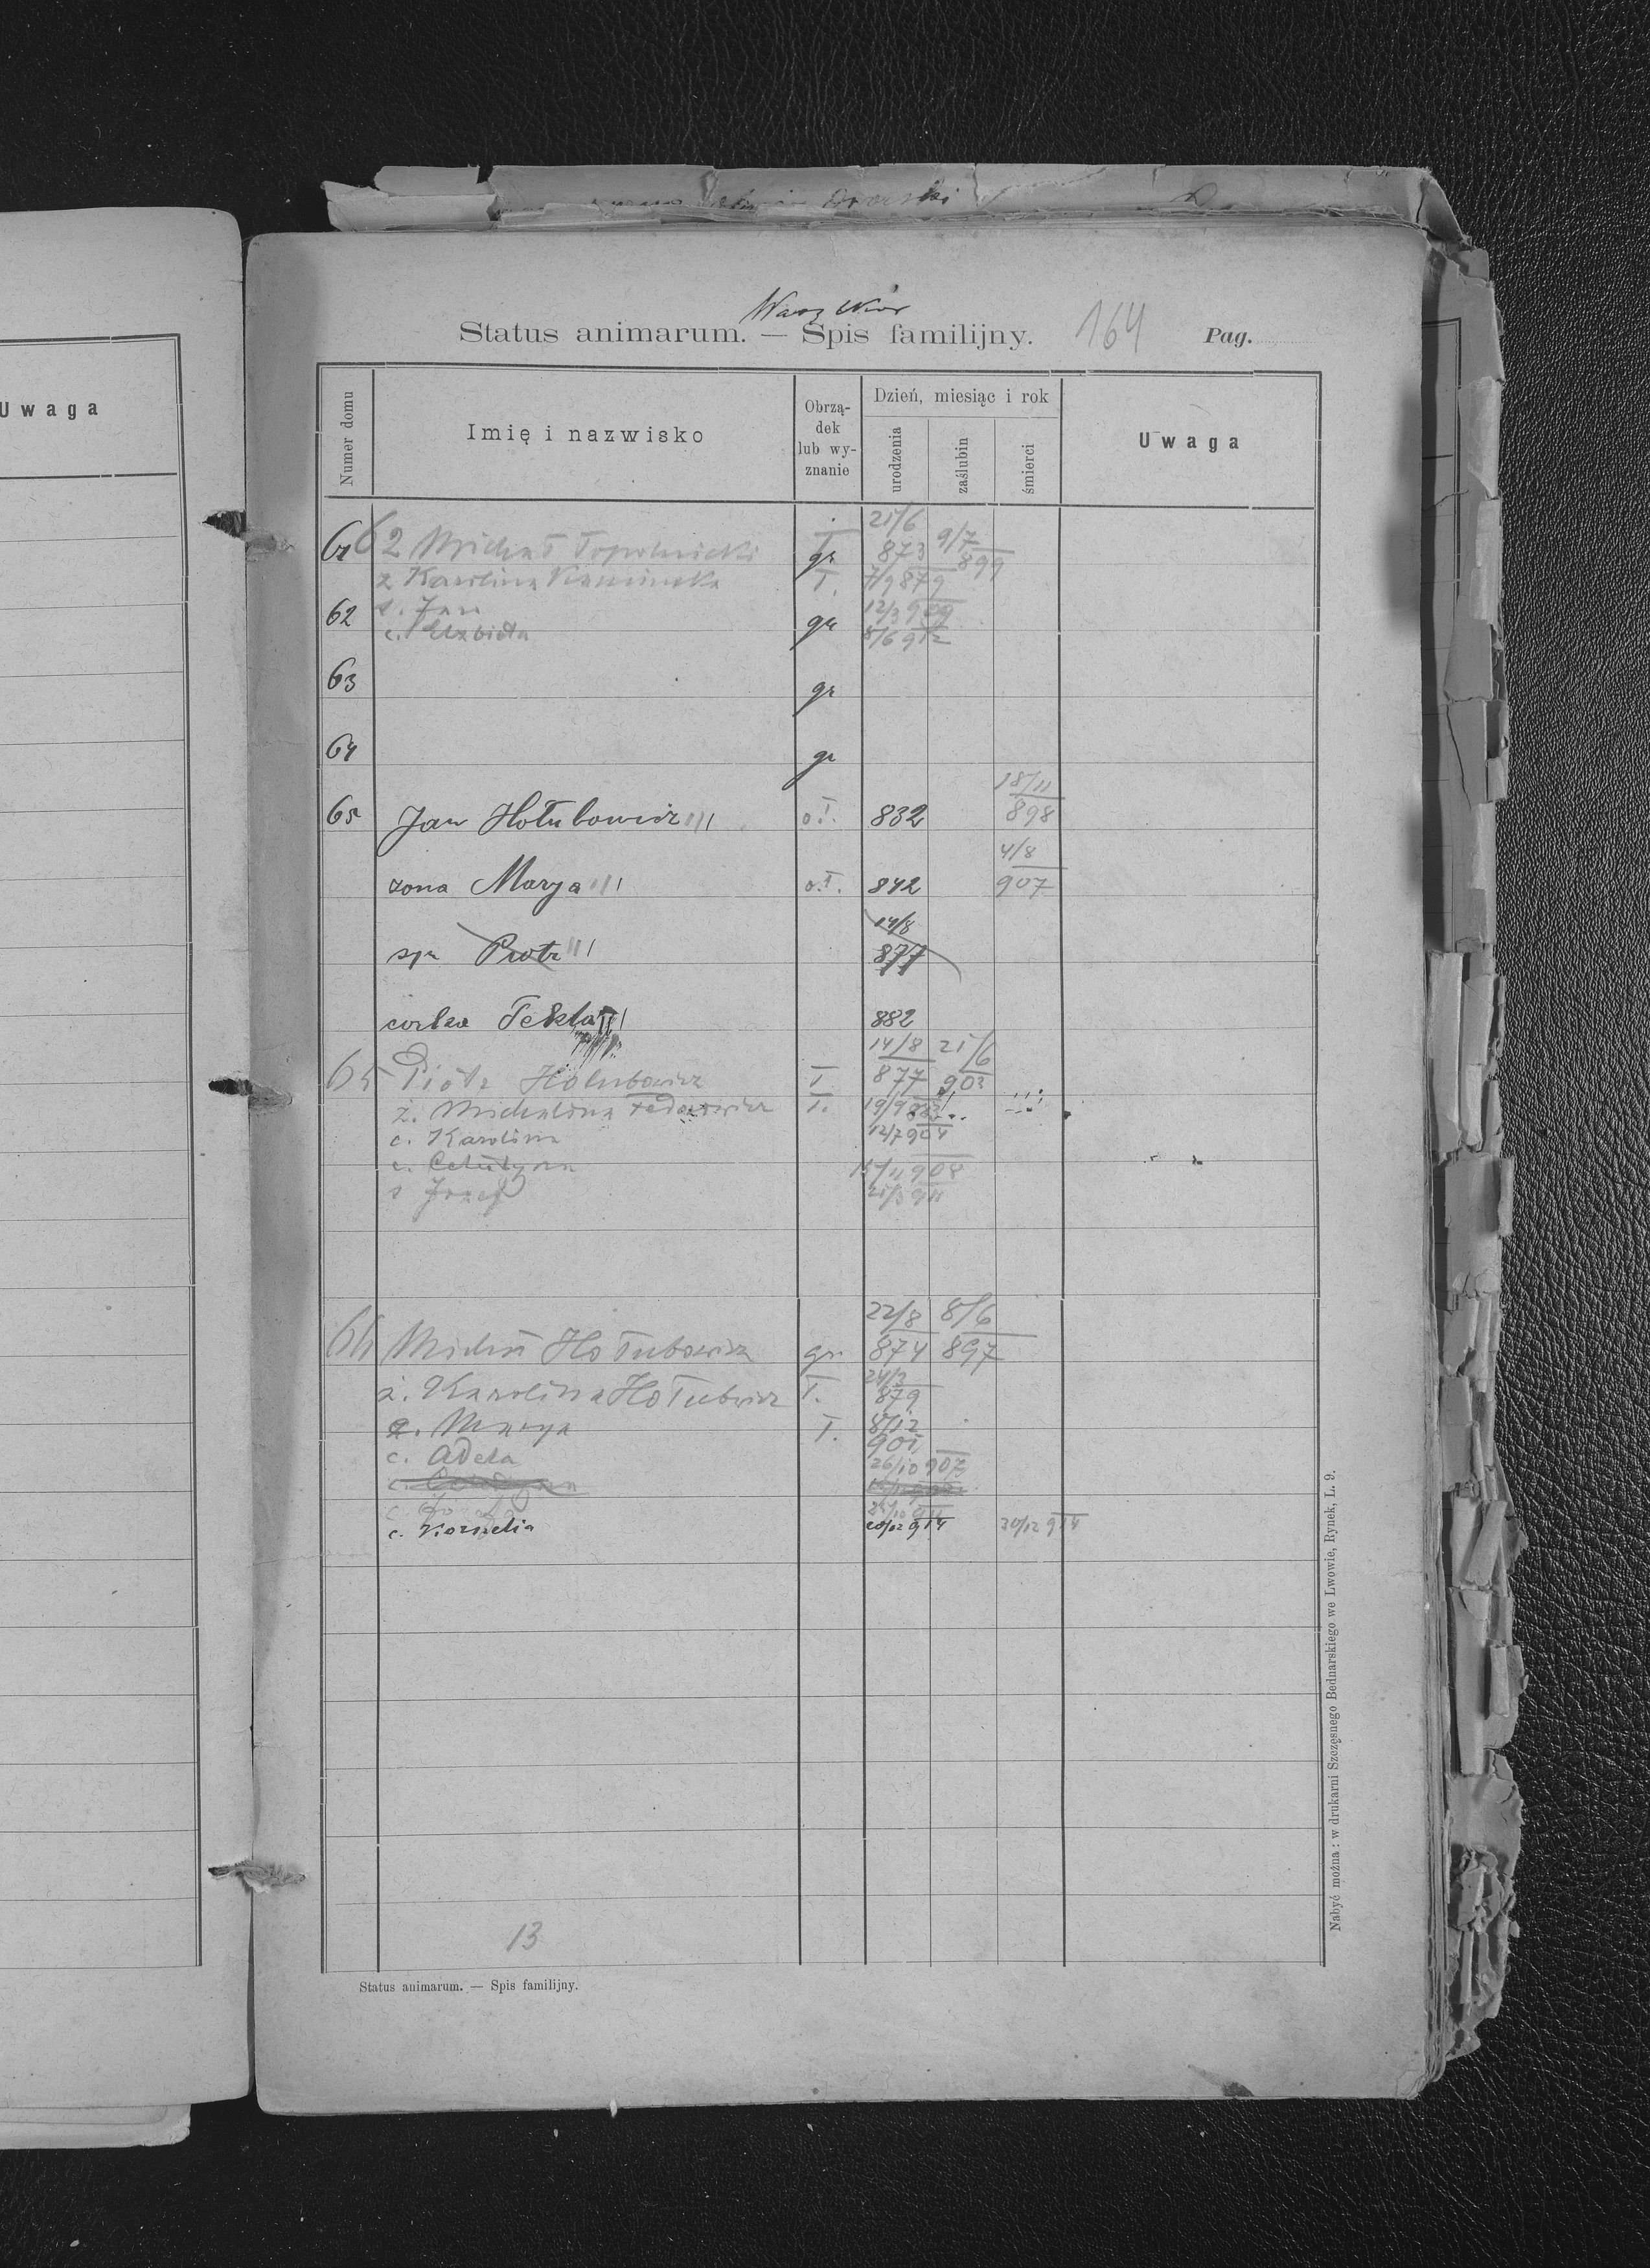 Status animarum. — Spis familijny. 164 Pag.
Uwaga
Numer domu
Imię i nazwisko
Obrzą-
dek
lub wy-
znanie
Dzień, miesiąc i rok
urodzenia
zaślubin
śmierci
Uwaga
61 62 Michał Topolnicki gr ł 21/6 873 9/7 899
ż Karolina Kaminska ł. 7/9 879
62 s. Jan gr 12/3 909
c. Elzbieta 8/6 912
63 gr
64 gr
65 Jan Hołubowicz III o.ł. 832 18/11 898
zona Marya III o.ł. 842 4/8 907
syn Piotr III 14/8 877
corka Tekla III 882
65 Piotr Holubowicz ł 14/8 877 21/6 903
ż. Michalina Fedorowicz ł. 19/9
c. Karolina 12/7 904
c. 15/11 908
s Jozef 911
66 Michał Hołubowicz gr. 22/8 874 8/6 897
ż. Karolina Hołubowicz ł. 24/3 879
c. Marya ł. 8/12 901
c. Adela 26/10 907
c.
c. Kornelia 20/12 914 30/12 914
13
Status animarum. — Spis familijny.
Nabyć można: w drukarni Szczęsnego Bednarskiego we Lwowie, Rynek, L. 9.